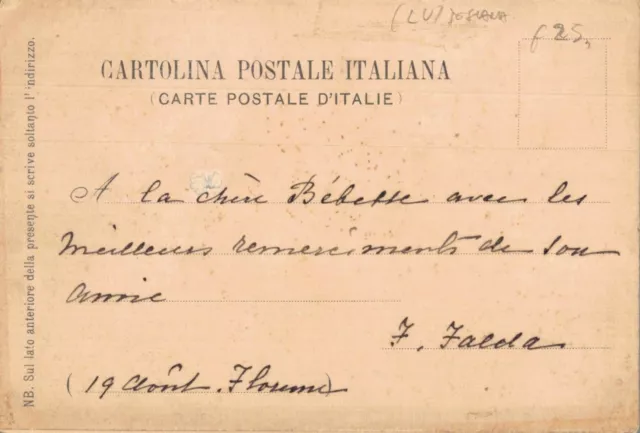 (LU) TOSCANA
£ 25,
CARTOLINA POSTALE ITALIANA
(CARTE POSTALE D'ITALIE)
NB. Sul lato anteriore della presente si scrive soltanto l'indirizzo.
A la chère Bébette avec les
meilleurs remerciments de son
amie
F. Falda
(19 Août. Florence)